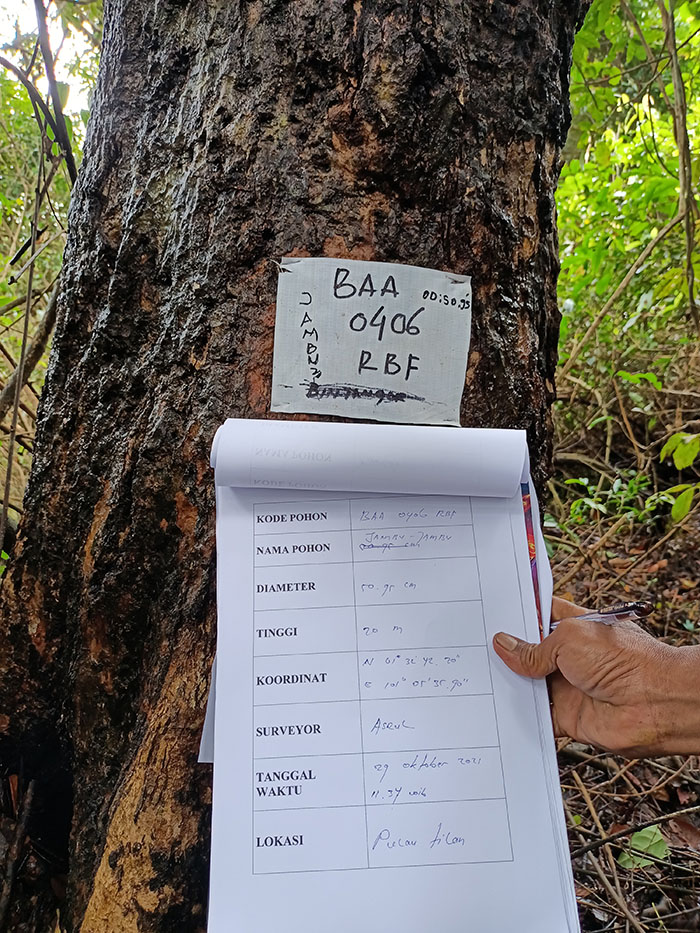 BAA
OD:50.95
0406
RBF
JAMBU"
KODE POHON BAA 0406 RBF
NAMA POHON JAMBU-JAMBU
DIAMETER 50.95 cm
TINGGI 20 m
KOORDINAT N 01° 32' 42.20"
E 101° 05' 35.90"
SURVEYOR Asrul
TANGGAL 29 Oktober 2021
WAKTU 11.37 wib
LOKASI Pulau Jilan